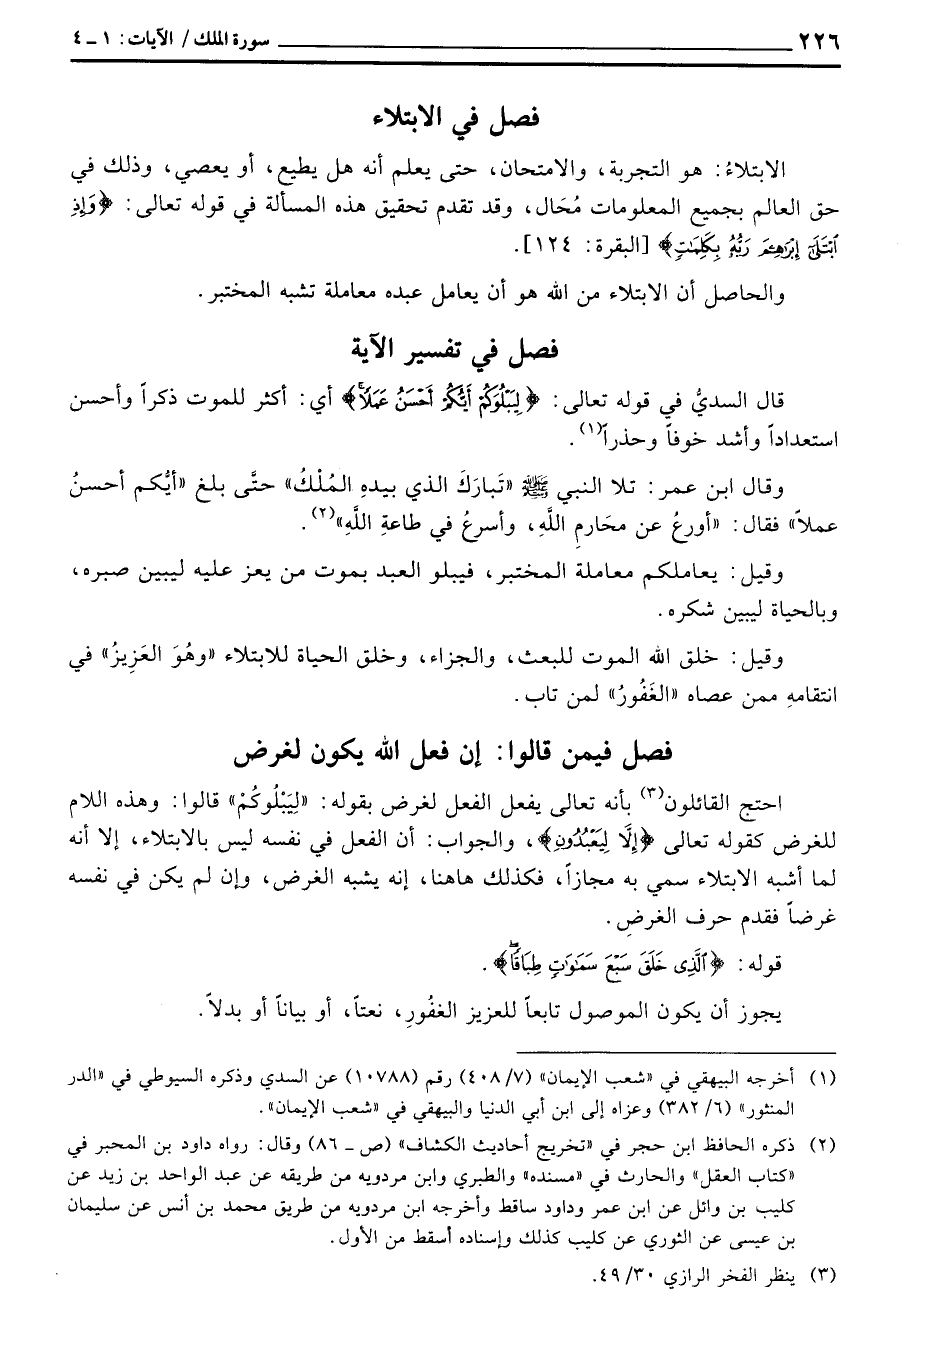 ٢٢٦ سورة الملك / الآيات: ١ ـ ٤
فصل في الابتلاء
الابتلاءُ: هو التجربة، والامتحان، حتى يعلم أنه هل يطيع، أو يعصي، وذلك في
حق العالم بجميع المعلومات مُحَال، وقد تقدم تحقيق هذه المسألة في قوله تعالى: ﴿وَإِذِ
ٱبْتَلَىٰٓ إِبْرَٰهِـۧمَ رَبُّهُۥ بِكَلِمَٰتٍ﴾ [البقرة: ١٢٤].
والحاصل أن الابتلاء من الله هو أن يعامل عبده معاملة تشبه المختبر.
فصل في تفسير الآية
قال السديُّ في قوله تعالى: ﴿لِيَبْلُوَكُمْ أَيُّكُمْ أَحْسَنُ عَمَلًاۚ﴾ أي: أكثر للموت ذكراً وأحسن
استعداداً وأشد خوفاً وحذراً(١).
وقال ابن عمر: تلا النبي ﷺ «تَبارَكَ الذي بيدهِ المُلْكُ» حتَّى بلغ «أيُّكم أحسنُ
عملاً» فقال: «أورعُ عن محَارمِ اللَّهِ، وأسرعُ في طاعةِ اللَّهِ»(٢).
وقيل: يعاملكم معاملة المختبر، فيبلو العبد بموت من يعز عليه ليبين صبره،
وبالحياة ليبين شكره.
وقيل: خلق الله الموت للبعث، والجزاء، وخلق الحياة للابتلاء «وهُوَ العَزِيزُ» في
انتقامهِ ممن عصاه «الغَفُورُ» لمن تاب.
فصل فيمن قالوا: إن فعل الله يكون لغرض
احتج القائلون(٣) بأنه تعالى يفعل الفعل لغرض بقوله: «لِيَبْلُوكُمْ» قالوا: وهذه اللام
للغرض كقوله تعالى ﴿إِلَّا لِيَعْبُدُونِ﴾، والجواب: أن الفعل في نفسه ليس بالابتلاء، إلا أنه
لما أشبه الابتلاء سمي به مجازاً، فكذلك هاهنا، إنه يشبه الغرض، وإن لم يكن في نفسه
غرضاً فقدم حرف الغرضِ.
قوله: ﴿ٱلَّذِى خَلَقَ سَبْعَ سَمَٰوَٰتٍ طِبَاقًاۖ﴾.
يجوز أن يكون الموصول تابعاً للعزيز الغفُورِ، نعتاً، أو بياناً أو بدلاً.
(١) أخرجه البيهقي في «شعب الإيمان» (٧/ ٤٠٨) رقم (١٠٧٨٨) عن السدي وذكره السيوطي في «الدر
المنثور» (٦/ ٣٨٢) وعزاه إلى ابن أبي الدنيا والبيهقي في «شعب الإيمان».
(٢) ذكره الحافظ ابن حجر في «تخريج أحاديث الكشاف» (ص ـ ٨٦) وقال: رواه داود بن المحبر في
«كتاب العقل» والحارث في «مسنده» والطبري وابن مردويه من طريقه عن عبد الواحد بن زيد عن
كليب بن وائل عن ابن عمر وداود ساقط وأخرجه ابن مردويه من طريق محمد بن أنس عن سليمان
بن عيسى عن الثوري عن كليب كذلك وإسناده أسقط من الأول.
(٣) ينظر الفخر الرازي ٣٠/ ٤٩.